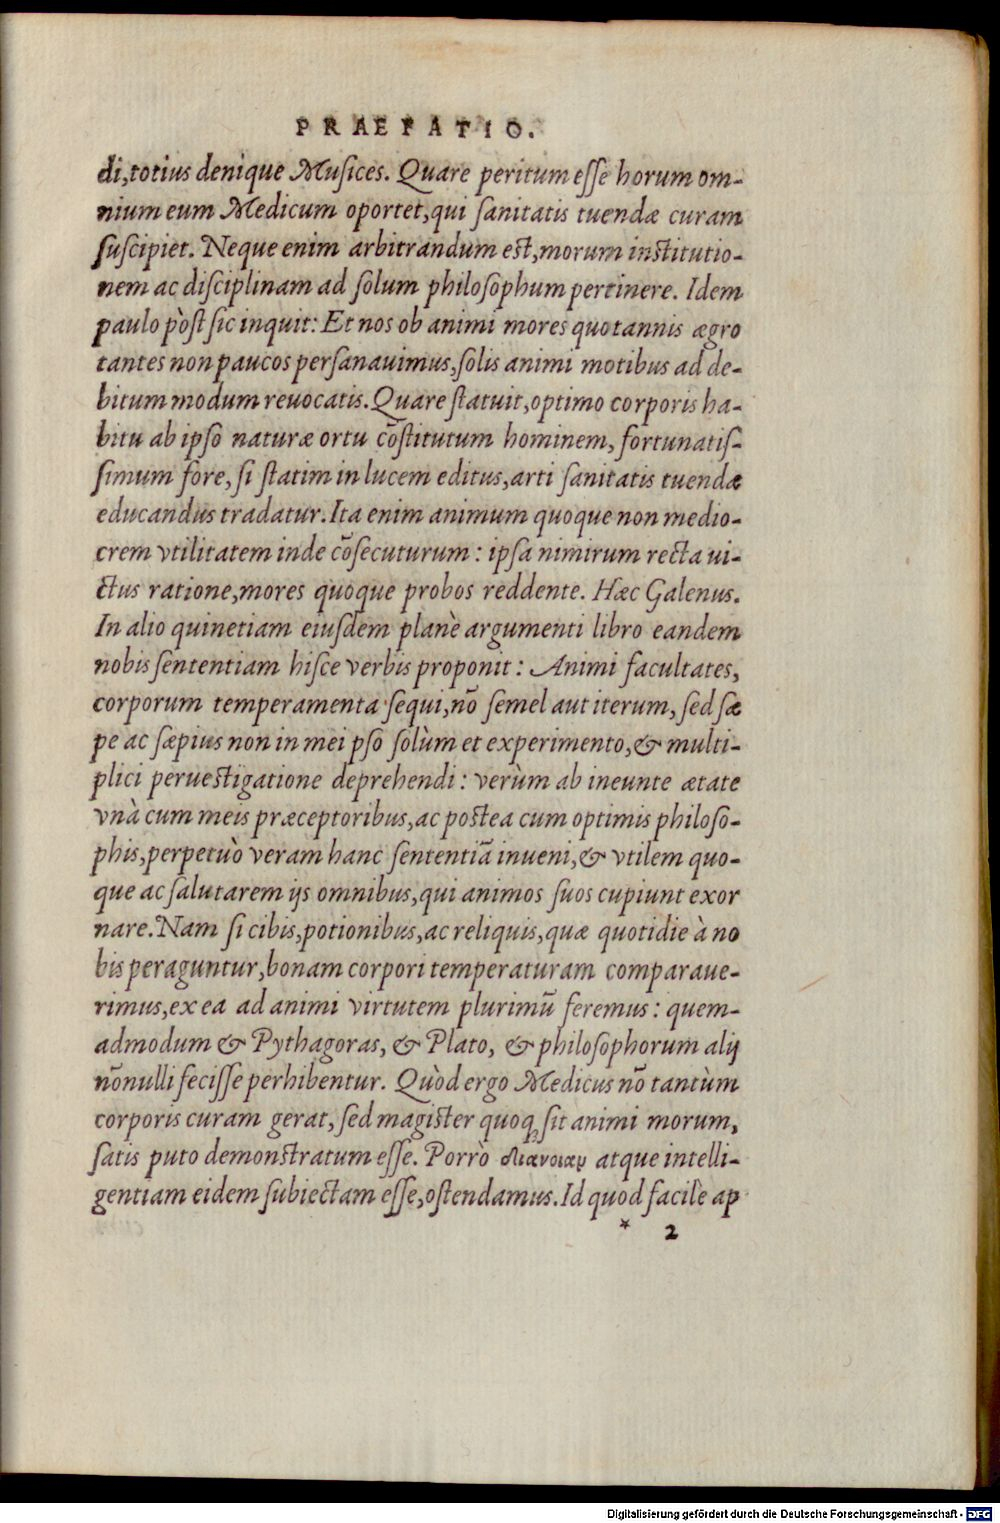 PRAEFATIO.
di, totius denique Musices. Quare peritum esse horum om-
nium eum Medicum oportet, qui sanitatis tuendæ curam
suscipiet. Neque enim arbitrandum est, morum institutio-
nem ac disciplinam ad solum philosophum pertinere. Idem
paulo pòst sic inquit: Et nos ob animi mores quotannis ægro
tantes non paucos persanauimus, solis animi motibus ad de-
bitum modum reuocatis. Quare statuit, optimo corporis ha-
bitu ab ipso naturæ ortu cõstitutum hominem, fortunatis-
simum fore, si statim in lucem editus, arti sanitatis tuendæ
educandus tradatur. Ita enim animum quoque non medio-
crem vtilitatem inde cõsecuturum: ipsa nimirum recta ui-
ctus ratione, mores quoque probos reddente. Hæc Galenus.
In alio quinetiam eiusdem planè argumenti libro eandem
nobis sententiam hisce verbis proponit: Animi facultates,
corporum temperamenta sequi, nõ semel aut iterum, sed sæ
pe ac sæpius non in mei pso solùm et experimento, & multi-
plici peruestigatione deprehendi: verùm ab ineunte ætate
vnà cum meis præceptoribus, ac postea cum optimis philoso-
phis, perpetuò veram hanc sententiã inueni, & vtilem quo-
que ac salutarem ijs omnibus, qui animos suos cupiunt exor
nare. Nam si cibis, potionibus, ac reliquis, quæ quotidie à no
bis peraguntur, bonam corpori temperaturam comparaue-
rimus, ex ea ad animi virtutem plurimũ feremus: quem-
admodum & Pythagoras, & Plato, & philosophorum alij
nõnulli fecisse perhibentur. Quòd ergo Medicus nõ tantùm
corporis curam gerat, sed magister quoq; sit animi morum,
satis puto demonstratum esse. Porrò διανοιαν atque intelli-
gentiam eidem subiectam esse, ostendamus. Id quod facilè ap
* 2
Digitalisierung gefördert durch die Deutsche Forschungsgemeinschaft - DFG